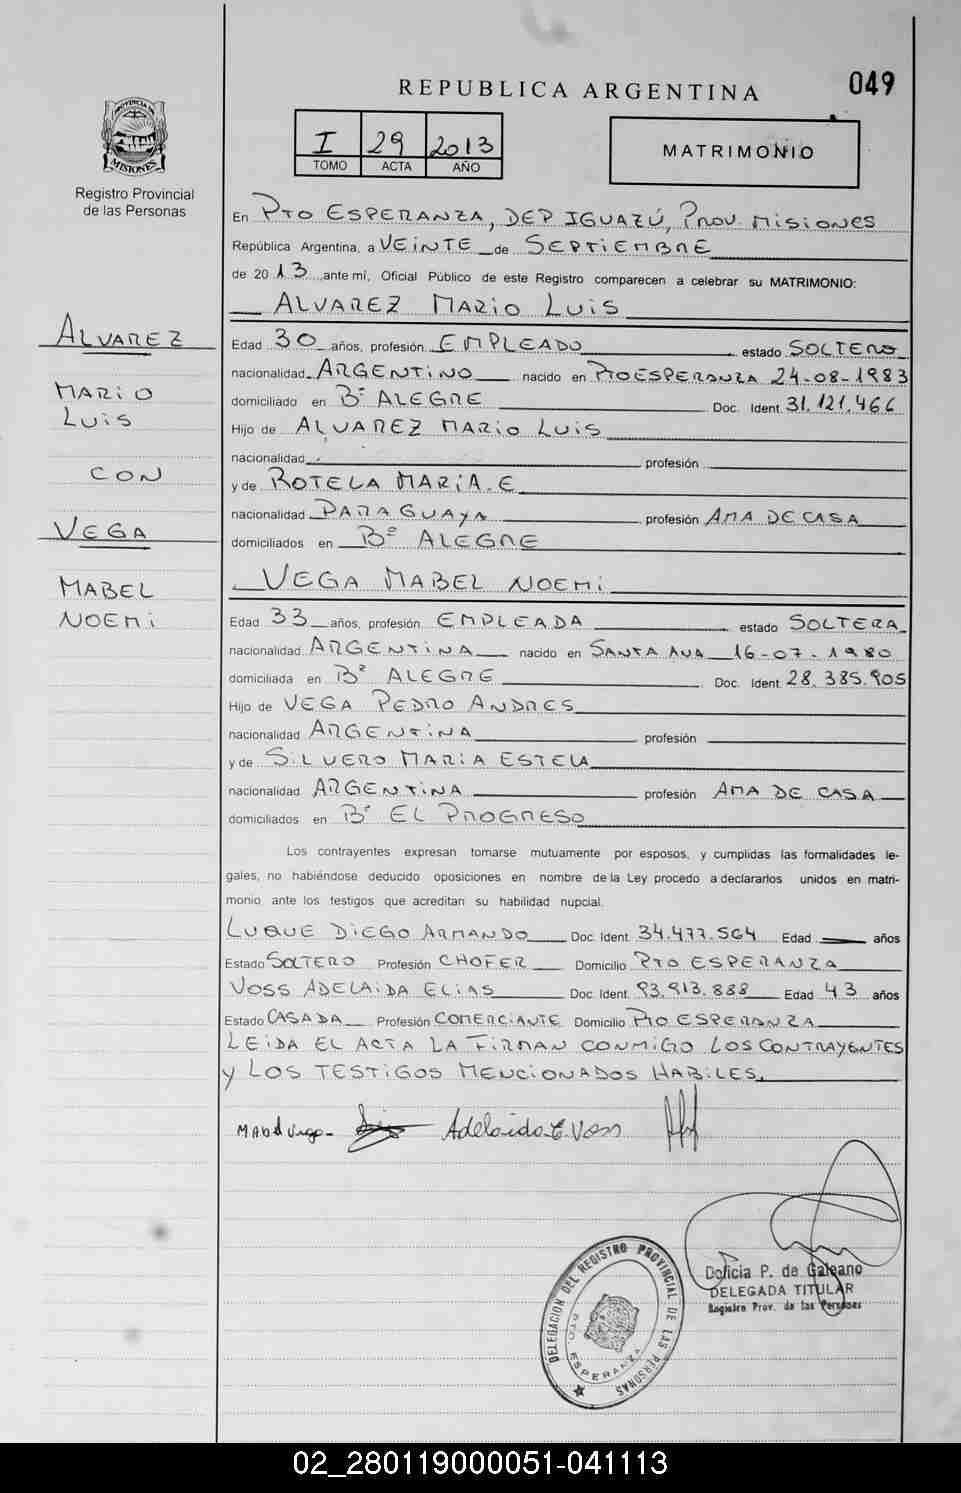 REPUBLICA ARGENTINA
049
PROVINCIA DE
MISIONES
Registro Provincial
de las Personas
I 29 2013
TOMO ACTA AÑO
MATRIMONIO
En PTO ESPERANZA, DEP IGUAZÚ, PROV. MISIONES
República Argentina, a VEINTE de SEPTIEMBRE
de 2013 ante mí, Oficial Público de este Registro comparecen a celebrar su MATRIMONIO:
ALVAREZ MARIO LUIS
ALVAREZ
MARIO
LUIS
CON
VEGA
MABEL
NOEMI
Edad 30 años, profesión EMPLEADO estado SOLTERO
nacionalidad ARGENTINO nacido en PTO ESPERANZA 24-08-1983
domiciliado en Bº ALEGRE Doc. Ident. 31.121.466
Hijo de ALVAREZ MARIO LUIS
nacionalidad profesión
y de ROTELA MARIA.E
nacionalidad PARAGUAYA profesión AMA DE CASA
domiciliados en Bº ALEGRE
VEGA MABEL NOEMI
Edad 33 años, profesión EMPLEADA estado SOLTERA
nacionalidad ARGENTINA nacido en SANTA ANA 16-07-1980
domiciliada en Bº ALEGRE Doc. Ident. 28.385.905
Hijo de VEGA PEDRO ANDRES
nacionalidad ARGENTINA profesión
y de SILVERO MARIA ESTELA
nacionalidad ARGENTINA profesión AMA DE CASA
domiciliados en Bº EL PROGRESO
Los contrayentes expresan tomarse mutuamente por esposos, y cumplidas las formalidades le-
gales, no habiéndose deducido oposiciones en nombre de la Ley procedo a declararlos unidos en matri-
monio ante los testigos que acreditan su habilidad nupcial.
LUQUE DIEGO ARMANDO Doc. Ident. 34.477.564 Edad años
Estado SOLTERO Profesión CHOFER Domicilio PTO ESPERANZA
VOSS ADELAIDA ELIAS Doc. Ident. 93.913.888 Edad 43 años
Estado CASADA Profesión COMERCIANTE Domicilio PTO ESPERANZA
LEIDA EL ACTA LA FIRMAN CONMIGO LOS CONTRAYENTES
Y LOS TESTIGOS MENCIONADOS HABILES.
Mabel Vega Adelaida E. Voss
Delicia P. de Galeano
DELEGADA TITULAR
Registro Prov. de las Personas
DELEGACION DEL REGISTRO PROVINCIAL DE LAS PERSONAS
PTO ESPERANZA
02_280119000051-041113